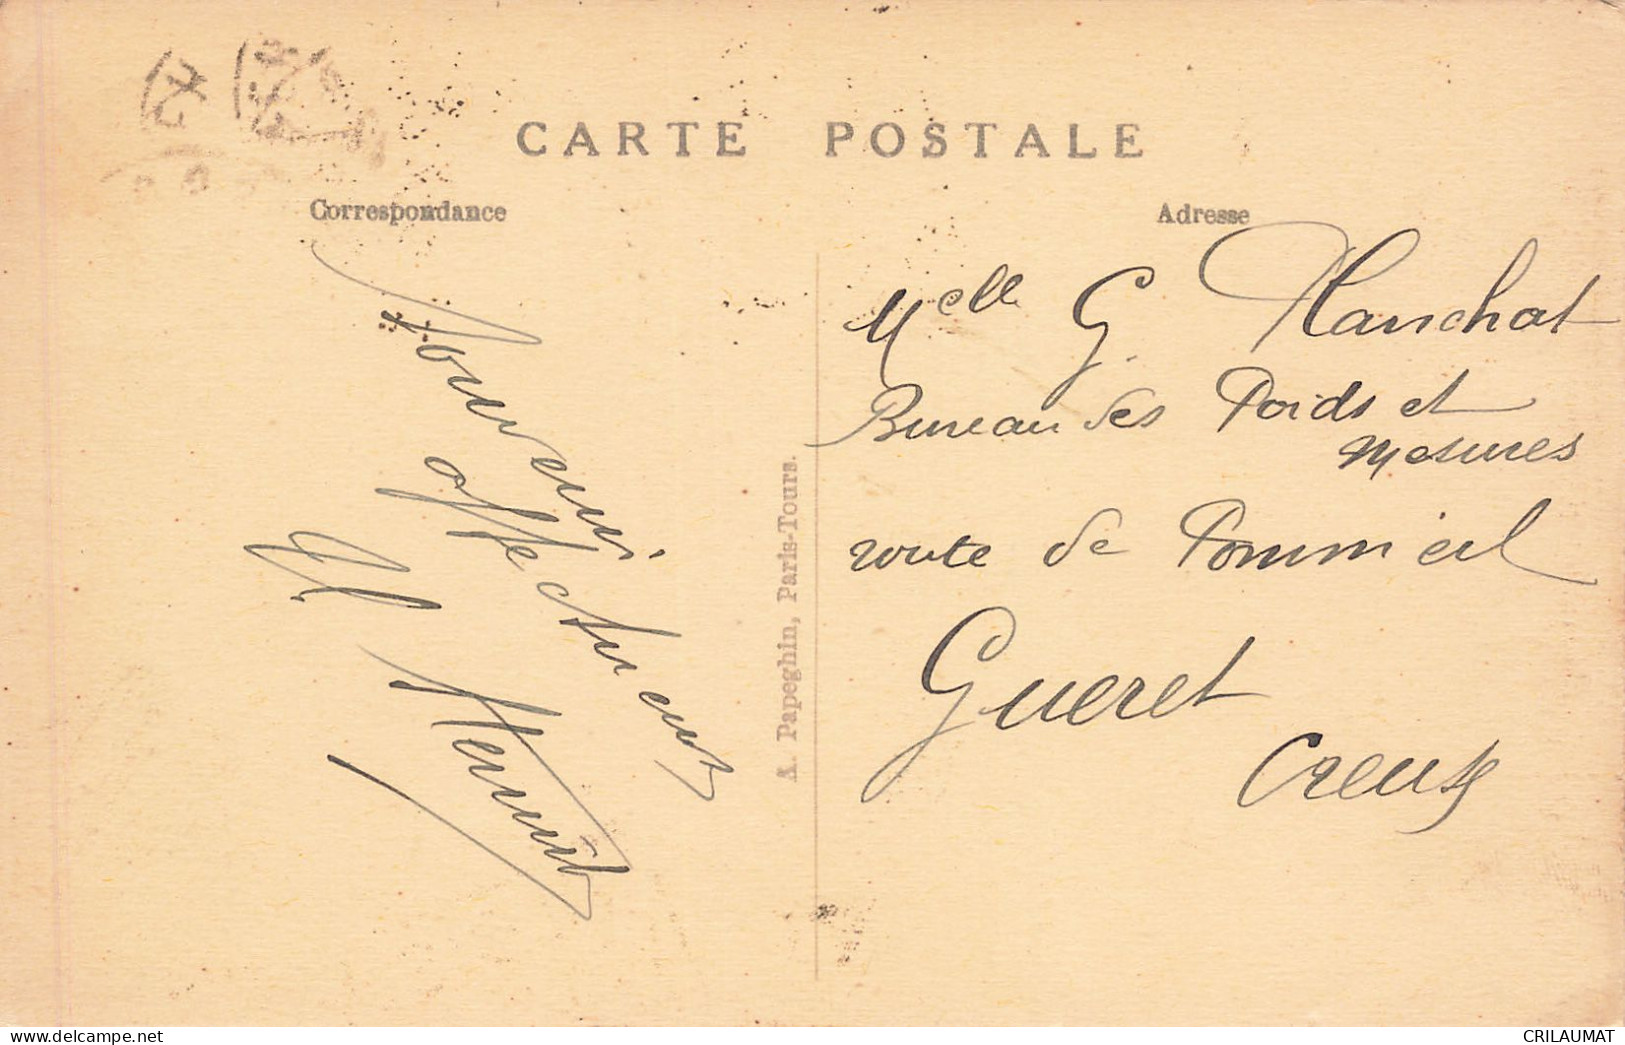 CARTE POSTALE
Correspondance
Adresse
Souvenir
affectueux
A. Papeghin, Paris-Tours.
Melle G. Planchat
Bureau des Poids et
Mesures
route de Pommeil
Gueret
Creuse
delcampe.net
CRILAUMAT